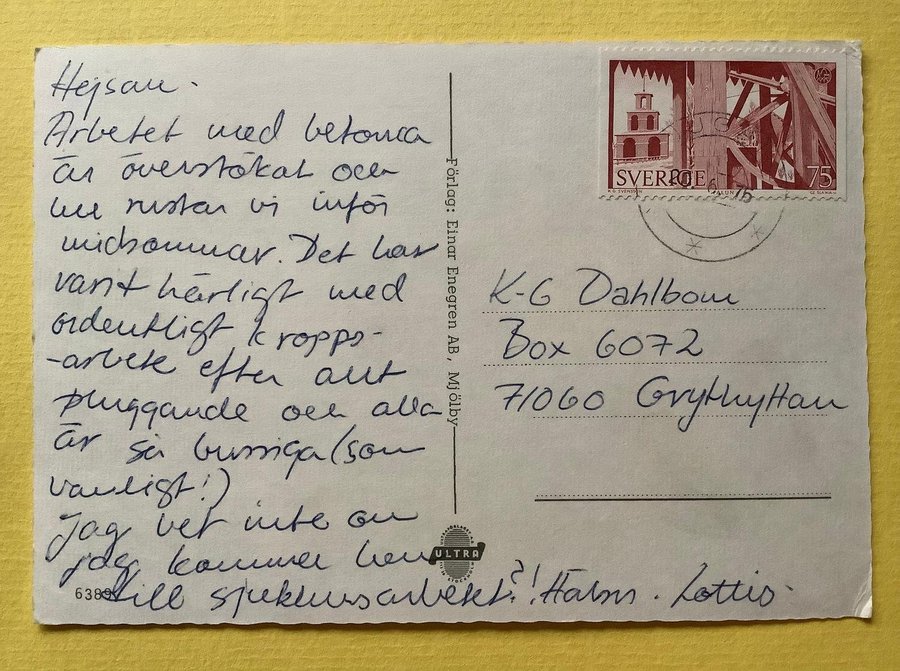 Hejsan.
Arbetet med betorna
är överstökat och
nu rustar vi inför
midsommar. Det har
varit härligt med
ordentligt kropps-
-arbete efter allt
pluggande och alla
är så bussiga (som
vanligt!)
Jag vet inte om
jag kommer hem
till sjukhusarbetet?! Hälsn. Lottis.
6389
Förlag: Einar Enegren AB, Mjölby
ULTRA
SVERIGE 75
FALUN
K-G Dahlbom
Box 6072
71060 Grythyttan